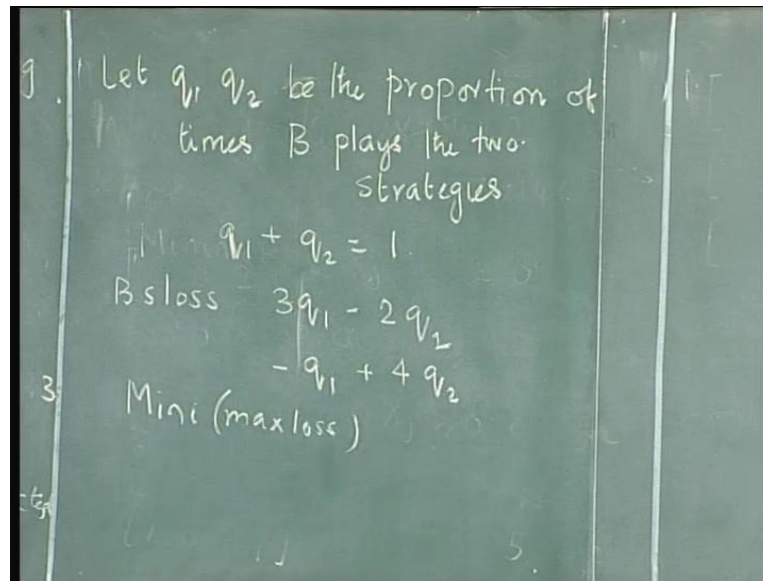 g.
Let q₁ q₂ be the proportion of
times B plays the two
strategies
q₁ + q₂ = 1
Bs loss 3q₁ - 2q₂
- q₁ + 4q₂
3
Mini (max loss)